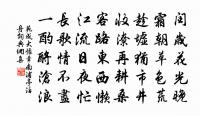 閏歲花光晚
霜朝草色荒
趁墟猶市井
收潦再耕桑
客路東西
江流日夜
長歌情不盡
一酌酹滄浪
范成大